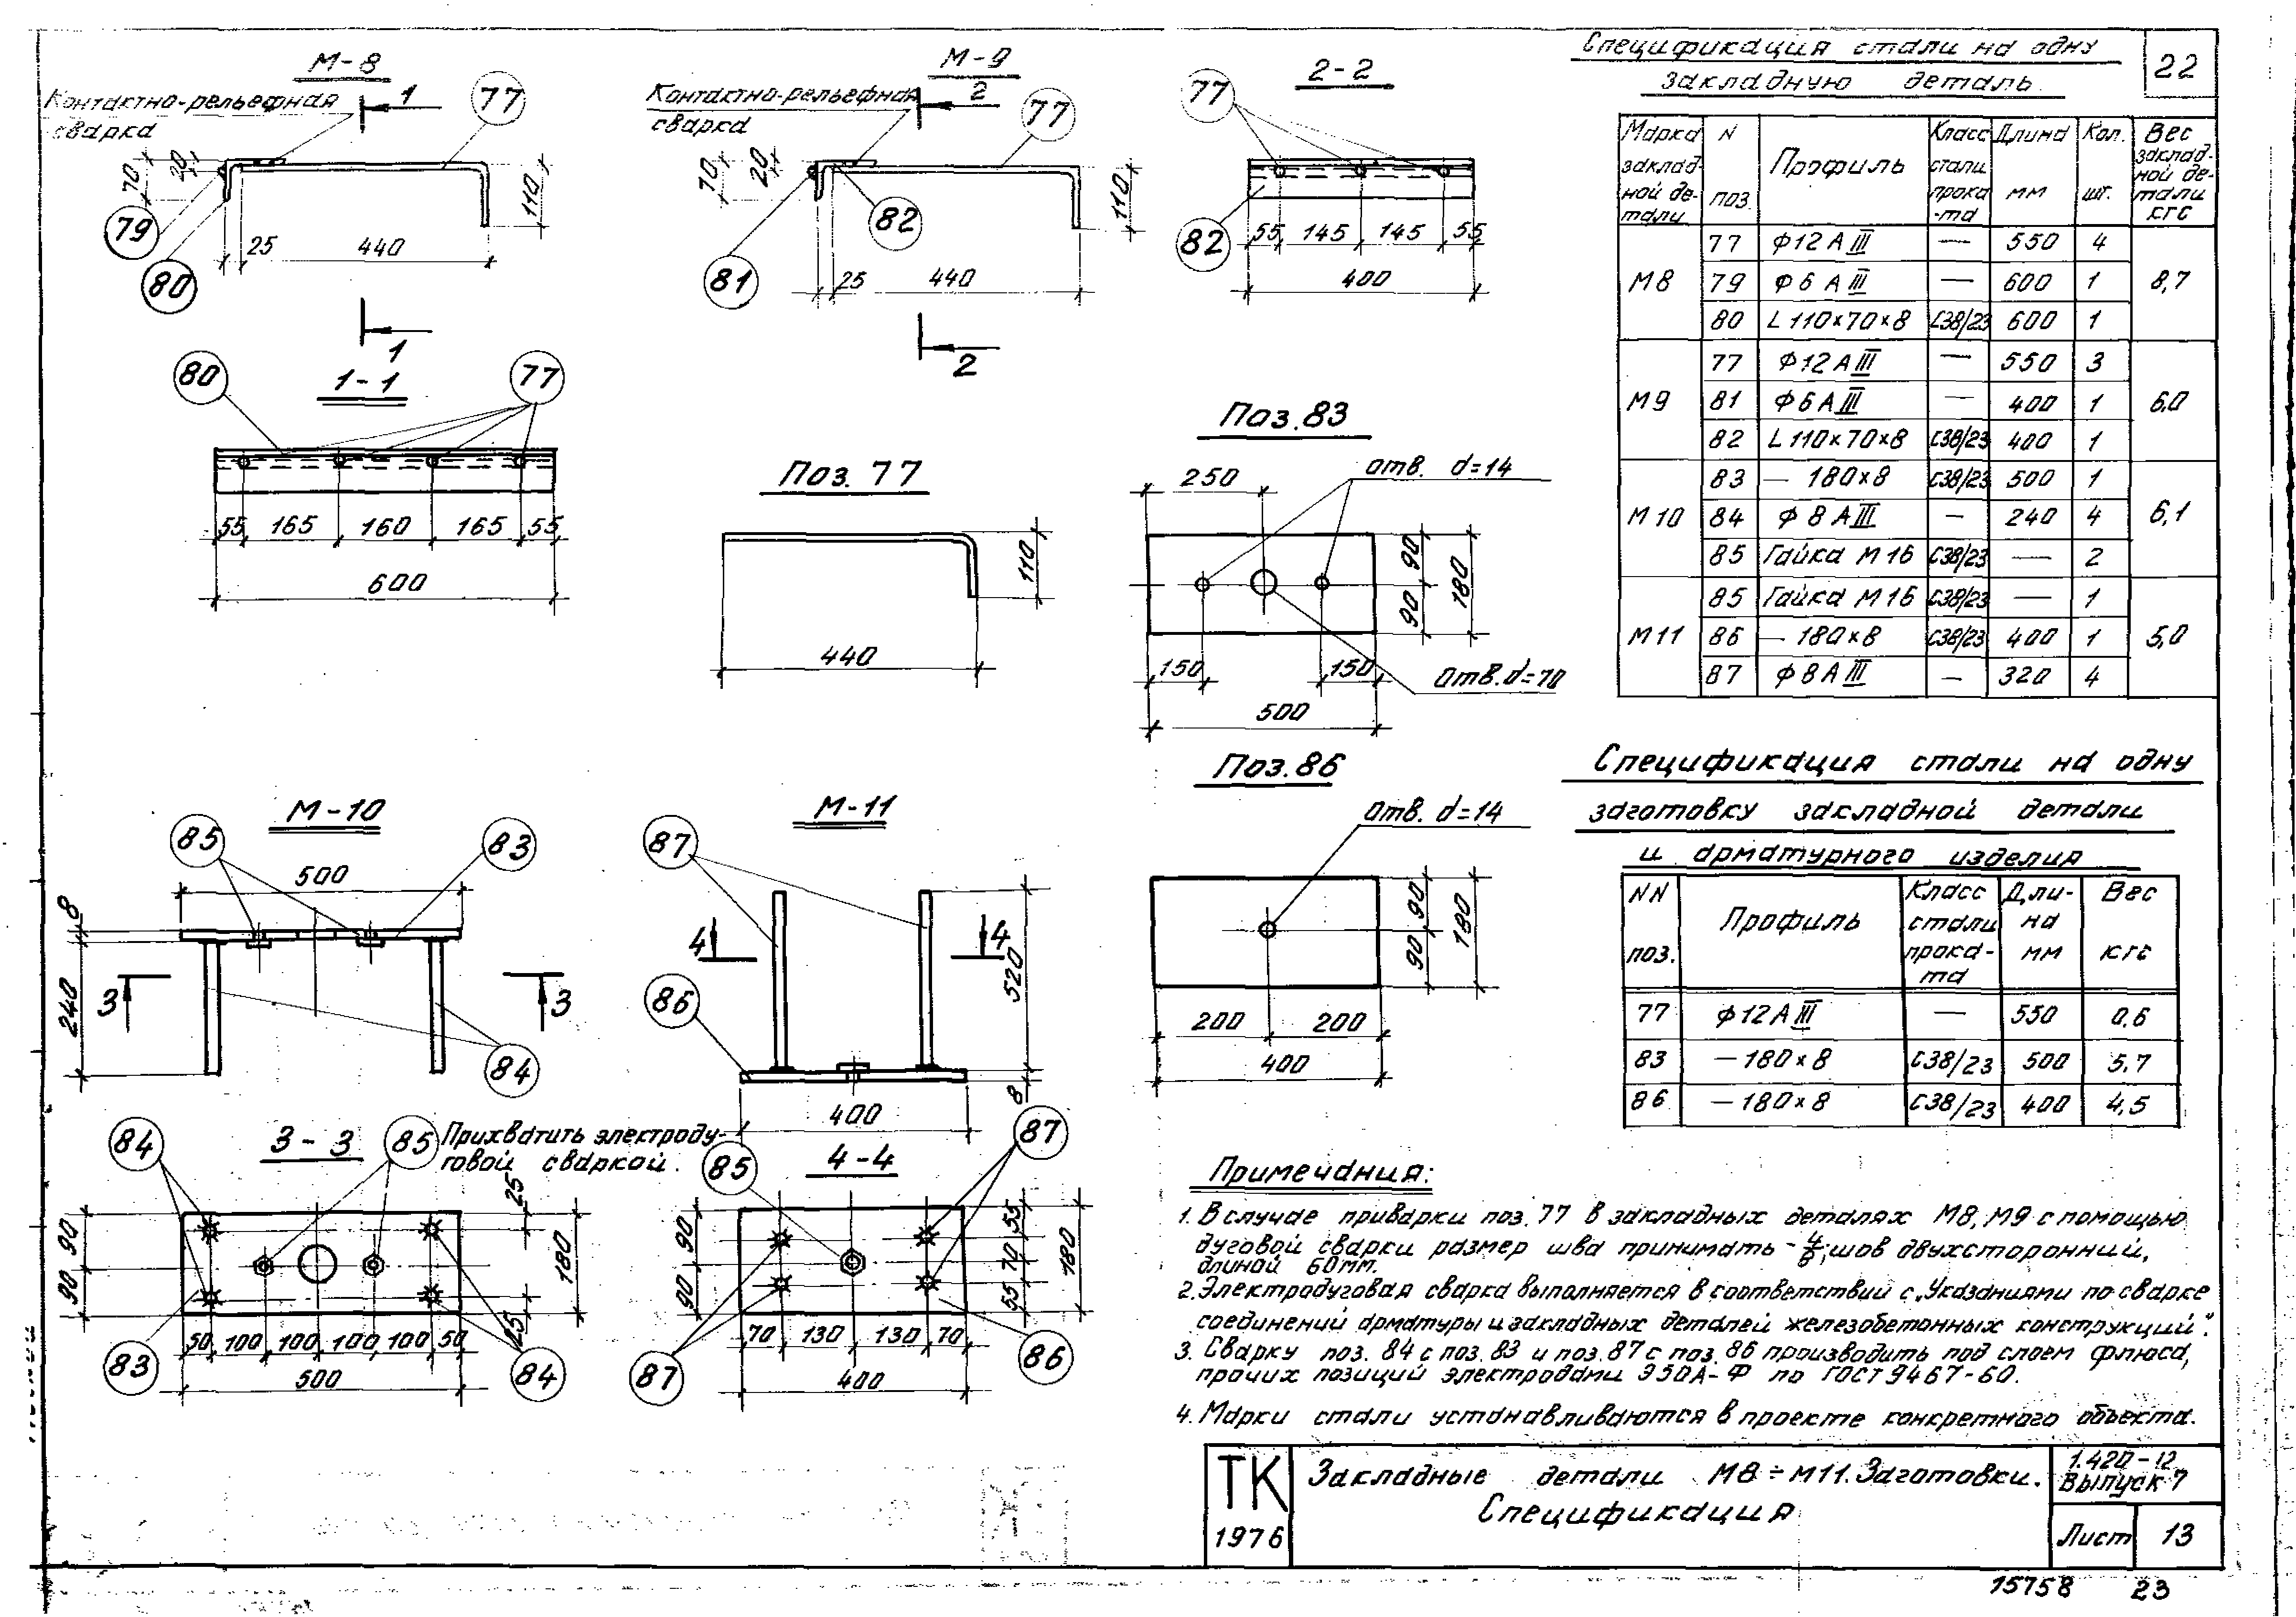 22
М-8
Контактно-рельефная
сварка
1
77
70
20
110
79
80
25
440
1
М-9
Контактно-рельефная
сварка
2
77
70
20
110
81
82
25
440
2
2-2
77
82
55 145 145 55
400
1-1
80
77
55 165 160 165 55
600
Поз. 77
110
440
Поз. 83
250
отв. d=14
90
90
180
150
150
отв. d=70
500
Поз. 86
отв. d=14
90
90
180
200 200
400
М-10
85
83
500
8
240
3
3
84
М-11
87
4
4
520
86
8
400
3-3
84
85
Прихватить электроду-
говой сваркой.
25
90
90
180
25
50 100 100 100 100 50
500
83
84
4-4
85
87
90
90
55
70
55
180
70 130 130 70
400
87
86
Спецификация стали на одну
закладную деталь
Марка закладной детали | N поз. | Профиль | Класс стали проката | Длина мм | Кол. шт. | Вес закладной детали кгс
М8 | 77 | Ф12 АIII | — | 550 | 4 | 8,7
79 | Ф6 АIII | — | 600 | 1
80 | L 110×70×8 | С38/23 | 600 | 1
М9 | 77 | Ф12 АIII | — | 550 | 3 | 6,0
81 | Ф6 АIII | — | 400 | 1
82 | L 110×70×8 | С38/23 | 400 | 1
М10 | 83 | — 180×8 | С38/23 | 500 | 1 | 6,1
84 | Ф 8 АIII | — | 240 | 4
85 | Гайка М16 | С38/23 | — | 2
М11 | 85 | Гайка М16 | С38/23 | — | 1 | 5,0
86 | — 180×8 | С38/23 | 400 | 1
87 | Ф8 АIII | — | 320 | 4
Спецификация стали на одну
заготовку закладной детали
и арматурного изделия
NN поз. | Профиль | Класс стали проката | Длина мм | Вес кгс
77 | Ф12 АIII | — | 550 | 0,6
83 | — 180×8 | С38/23 | 500 | 5,7
86 | — 180×8 | С38/23 | 400 | 4,5
Примечания:
1. В случае приварки поз. 77 в закладных деталях М8, М9 с помощью
дуговой сварки размер шва принимать - 4/6; шов двухсторонний,
длиной 60мм.
2. Электродуговая сварка выполняется в соответствии с „Указаниями по сварке
соединений арматуры и закладных деталей железобетонных конструкций".
3. Сварку поз. 84 с поз. 83 и поз. 87 с поз. 86 производить под слоем флюса,
прочих позиций электродами Э50А-Ф по ГОСТ 9467-60.
4. Марки стали устанавливаются в проекте конкретного объекта.
ТК
1976
Закладные детали М8÷М11. Заготовки.
Спецификация
1.420-12
Выпуск 7
Лист 13
15758 23